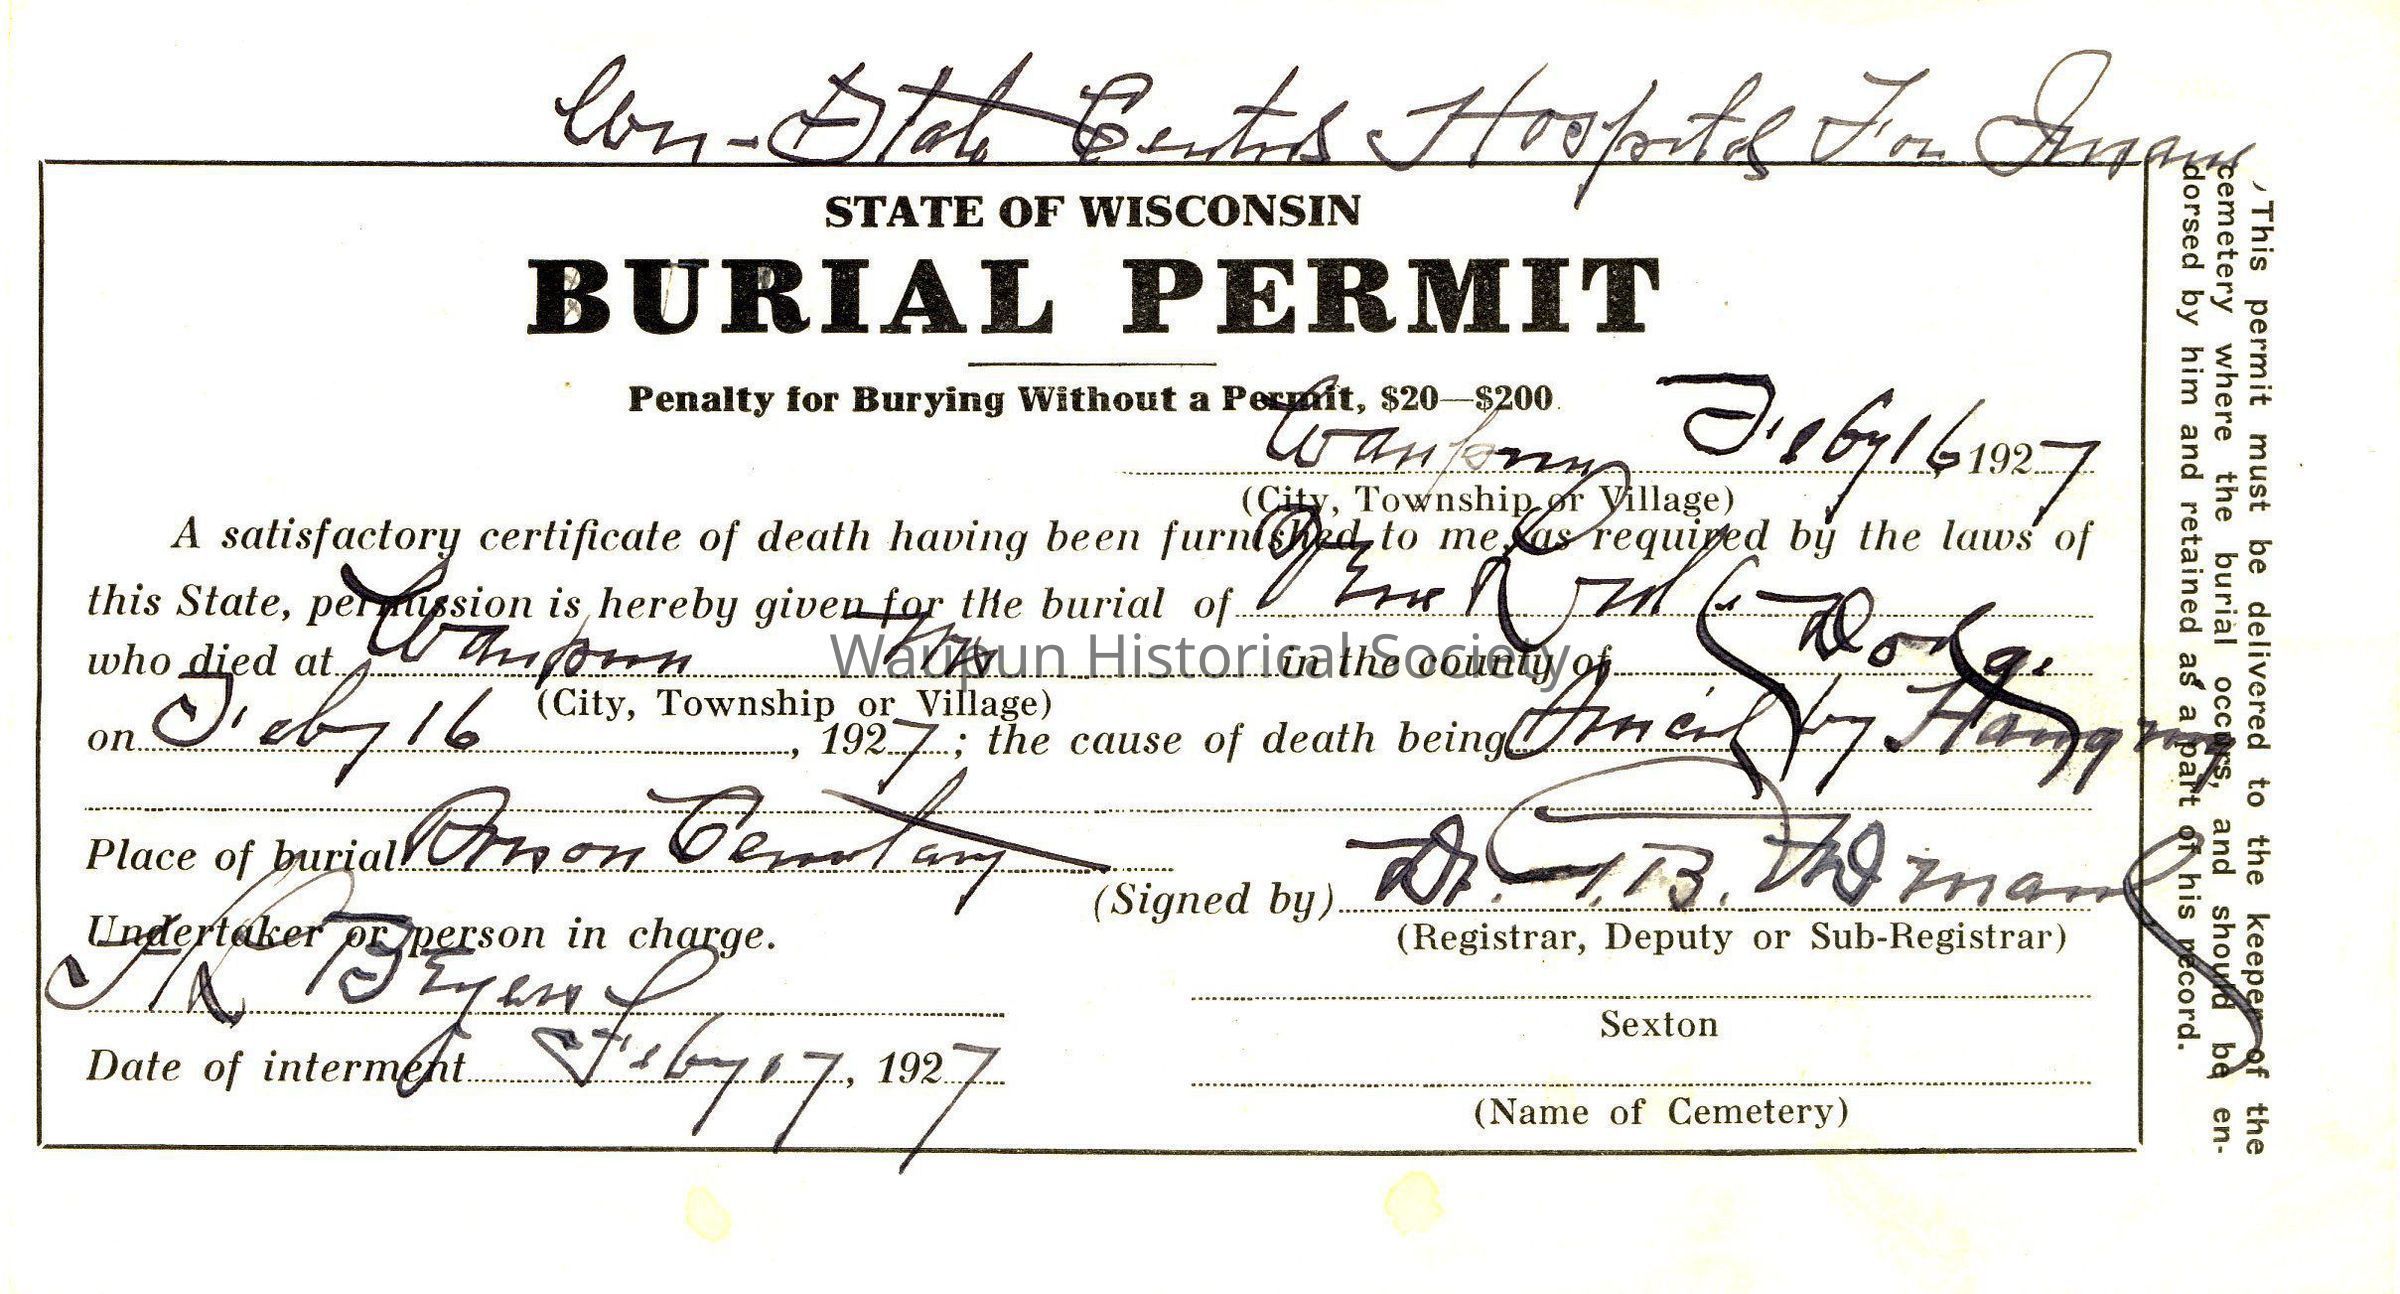 State Central Hospital For Insane
STATE OF WISCONSIN
BURIAL PERMIT
Penalty for Burying Without a Permit, $20—$200
Waupun Feby 16, 1927
(City, Township or Village)
A satisfactory certificate of death having been furnished to me, as required by the laws of
this State, permission is hereby given for the burial of
who died at Waupun Wis in the county of Dodge
(City, Township or Village)
on Feby 16, 1927; the cause of death being Suicide by Hanging
Place of burial Prison Cemetary
(Signed by) Dr.
Undertaker or person in charge.
(Registrar, Deputy or Sub-Registrar)
Sexton
Date of interment Feby 17, 1927
(Name of Cemetery)
This permit must be delivered to the keeper of the
cemetery where the burial occurs, and should be en-
dorsed by him and retained as a part of his record.
Waupun Historical Society